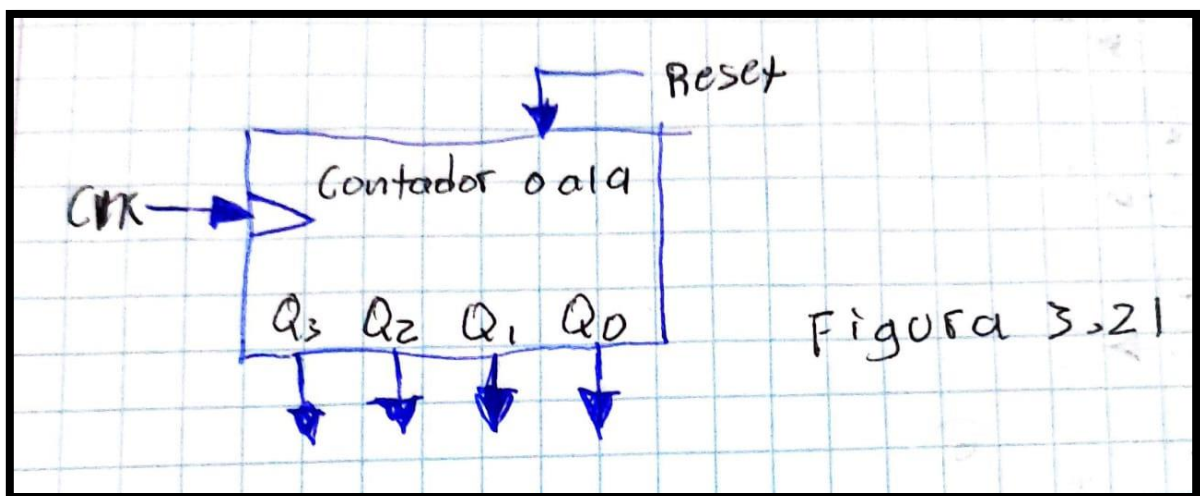 Reset
Contador 0 al 9
Clk
Q3 Q2 Q1 Q0
Figura 3.21